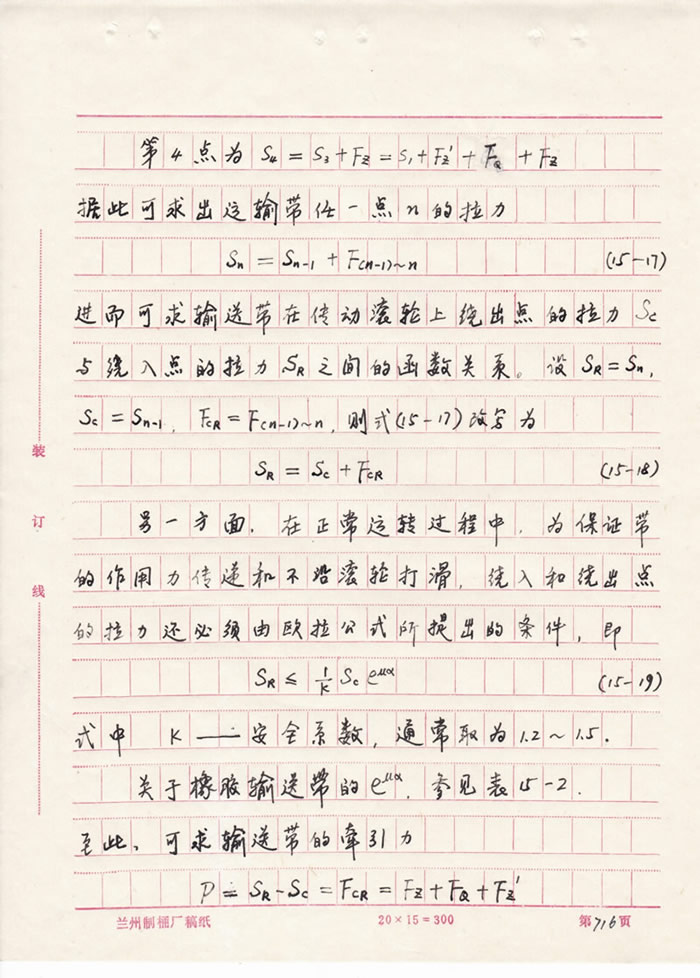 第4点为 S₄ = S₃ + Fz = S₁ + Fz' + FQ + Fz
据此可求出运输带任一点n的拉力
Sn = Sn-1 + F(n-1)~n (15-17)
进而可求输送带在传动滚轮上绕出点的拉力 Sc
与绕入点的拉力 SR 之间的函数关系。设 SR = Sn,
Sc = Sn-1, FCR = F(n-1)~n, 则式(15-17)改写为
SR = Sc + FCR (15-18)
另一方面, 在正常运转过程中, 为保证带
的作用力传递和不沿滚轮打滑, 绕入和绕出点
的拉力还必须由欧拉公式所提出的条件, 即
SR ≤ 1/K Sc e^μα (15-19)
式中 K —— 安全系数, 通常取为 1.2~1.5.
关于橡胶输送带的 e^μα, 参见表 15-2.
至此, 可求输送带的牵引力
P = SR - Sc = FCR = Fz + FQ + Fz'
装
订
线
兰州制桶厂稿纸 20×15=300 第716页